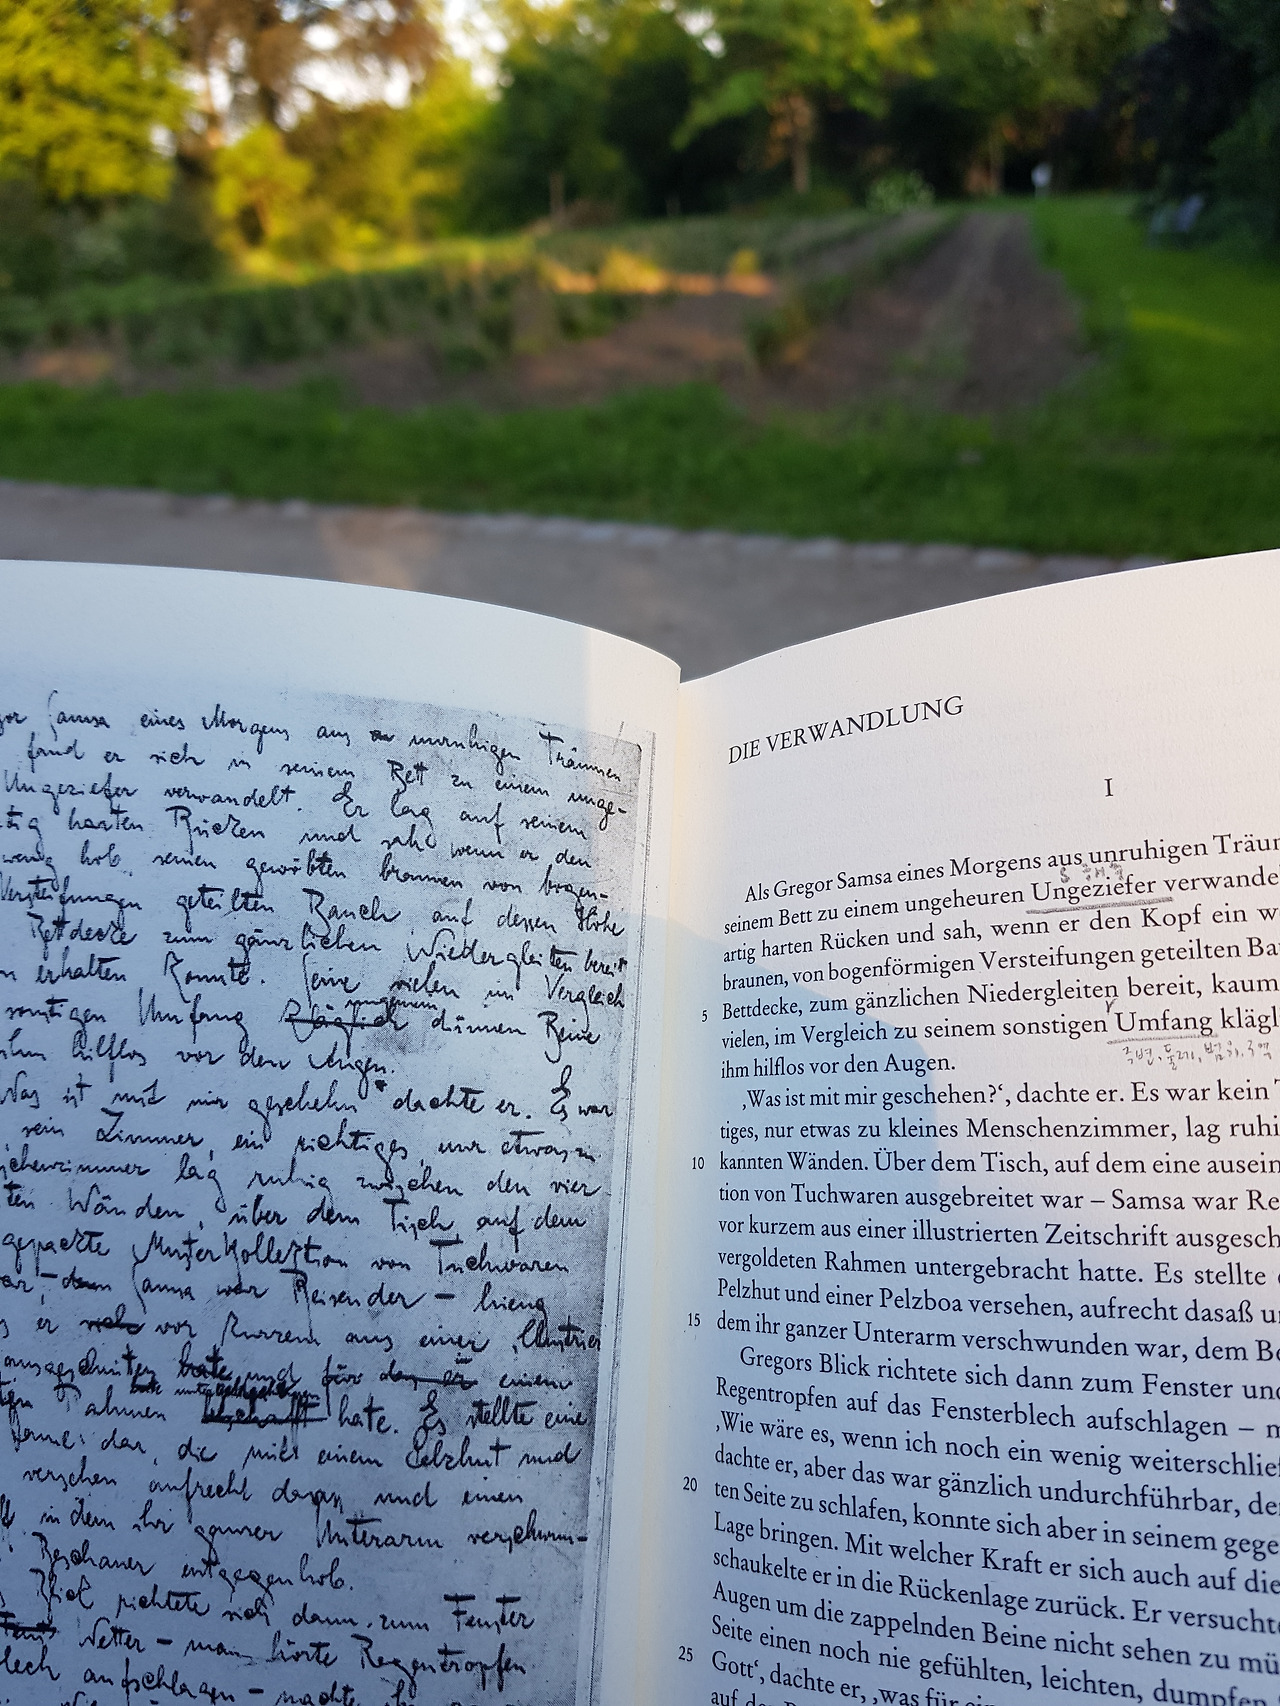 Samsa eines Morgens aus unruhigen Träumen
fand er sich in seinem Bett zu einem unge-
Ungeziefer verwandelt. Er lag auf seinem
harten Rücken und sah, wenn er den
wenig hob, seinen gewölbten braunen von bogen-
Versteifungen geteilten Bauch auf dessen Höhe
Bettdecke zum gänzlichen Niedergleiten bereit
erhalten konnte. Seine vielen im Vergleich
sonstigen Umfang dünnen Beine
hilflos vor den Augen.
Was ist mit mir geschehn dachte er. Es war
sein Zimmer, ein richtiges, nur etwas zu
lag ruhig zwischen den vier
Wänden, über dem Tisch, auf dem
Musterkollektion von Tuchwaren
Samsa war Reisender – hieng
er vor kurzem aus einer Illustrier
ausgeschnitten und für einem
Rahmen hatte. Es stellte eine
Dame dar, die mit einem Pelzhut und
versehen aufrecht dasass und einen
in dem ihr ganzer Unterarm verschwun-
Beschauer entgegenhob.
Blick richtete sich dann zum Fenster
Wetter – man hörte Regentropfen
aufschlagen – machte
DIE VERWANDLUNG
I
Als Gregor Samsa eines Morgens aus unruhigen Träum
seinem Bett zu einem ungeheuren Ungeziefer verwande
해충
artig harten Rücken und sah, wenn er den Kopf ein w
braunen, von bogenförmigen Versteifungen geteilten Ba
5 Bettdecke, zum gänzlichen Niedergleiten bereit, kaum
vielen, im Vergleich zu seinem sonstigen Umfang klägl
둘레, 범위
ihm hilflos vor den Augen.
‚Was ist mit mir geschehen?‘, dachte er. Es war kein T
tiges, nur etwas zu kleines Menschenzimmer, lag ruhi
10 kannten Wänden. Über dem Tisch, auf dem eine ausein
tion von Tuchwaren ausgebreitet war – Samsa war Re
vor kurzem aus einer illustrierten Zeitschrift ausgesch
vergoldeten Rahmen untergebracht hatte. Es stellte
Pelzhut und einer Pelzboa versehen, aufrecht dasaß u
15 dem ihr ganzer Unterarm verschwunden war, dem Be
Gregors Blick richtete sich dann zum Fenster und
Regentropfen auf das Fensterblech aufschlagen – m
‚Wie wäre es, wenn ich noch ein wenig weiterschlief
dachte er, aber das war gänzlich undurchführbar, de
20 ten Seite zu schlafen, konnte sich aber in seinem gege
Lage bringen. Mit welcher Kraft er sich auch auf die
schaukelte er in die Rückenlage zurück. Er versuchte
Augen um die zappelnden Beine nicht sehen zu mü
Seite einen noch nie gefühlten, leichten, dumpfen
25 Gott‘, dachte er, ‚was für ein
auf